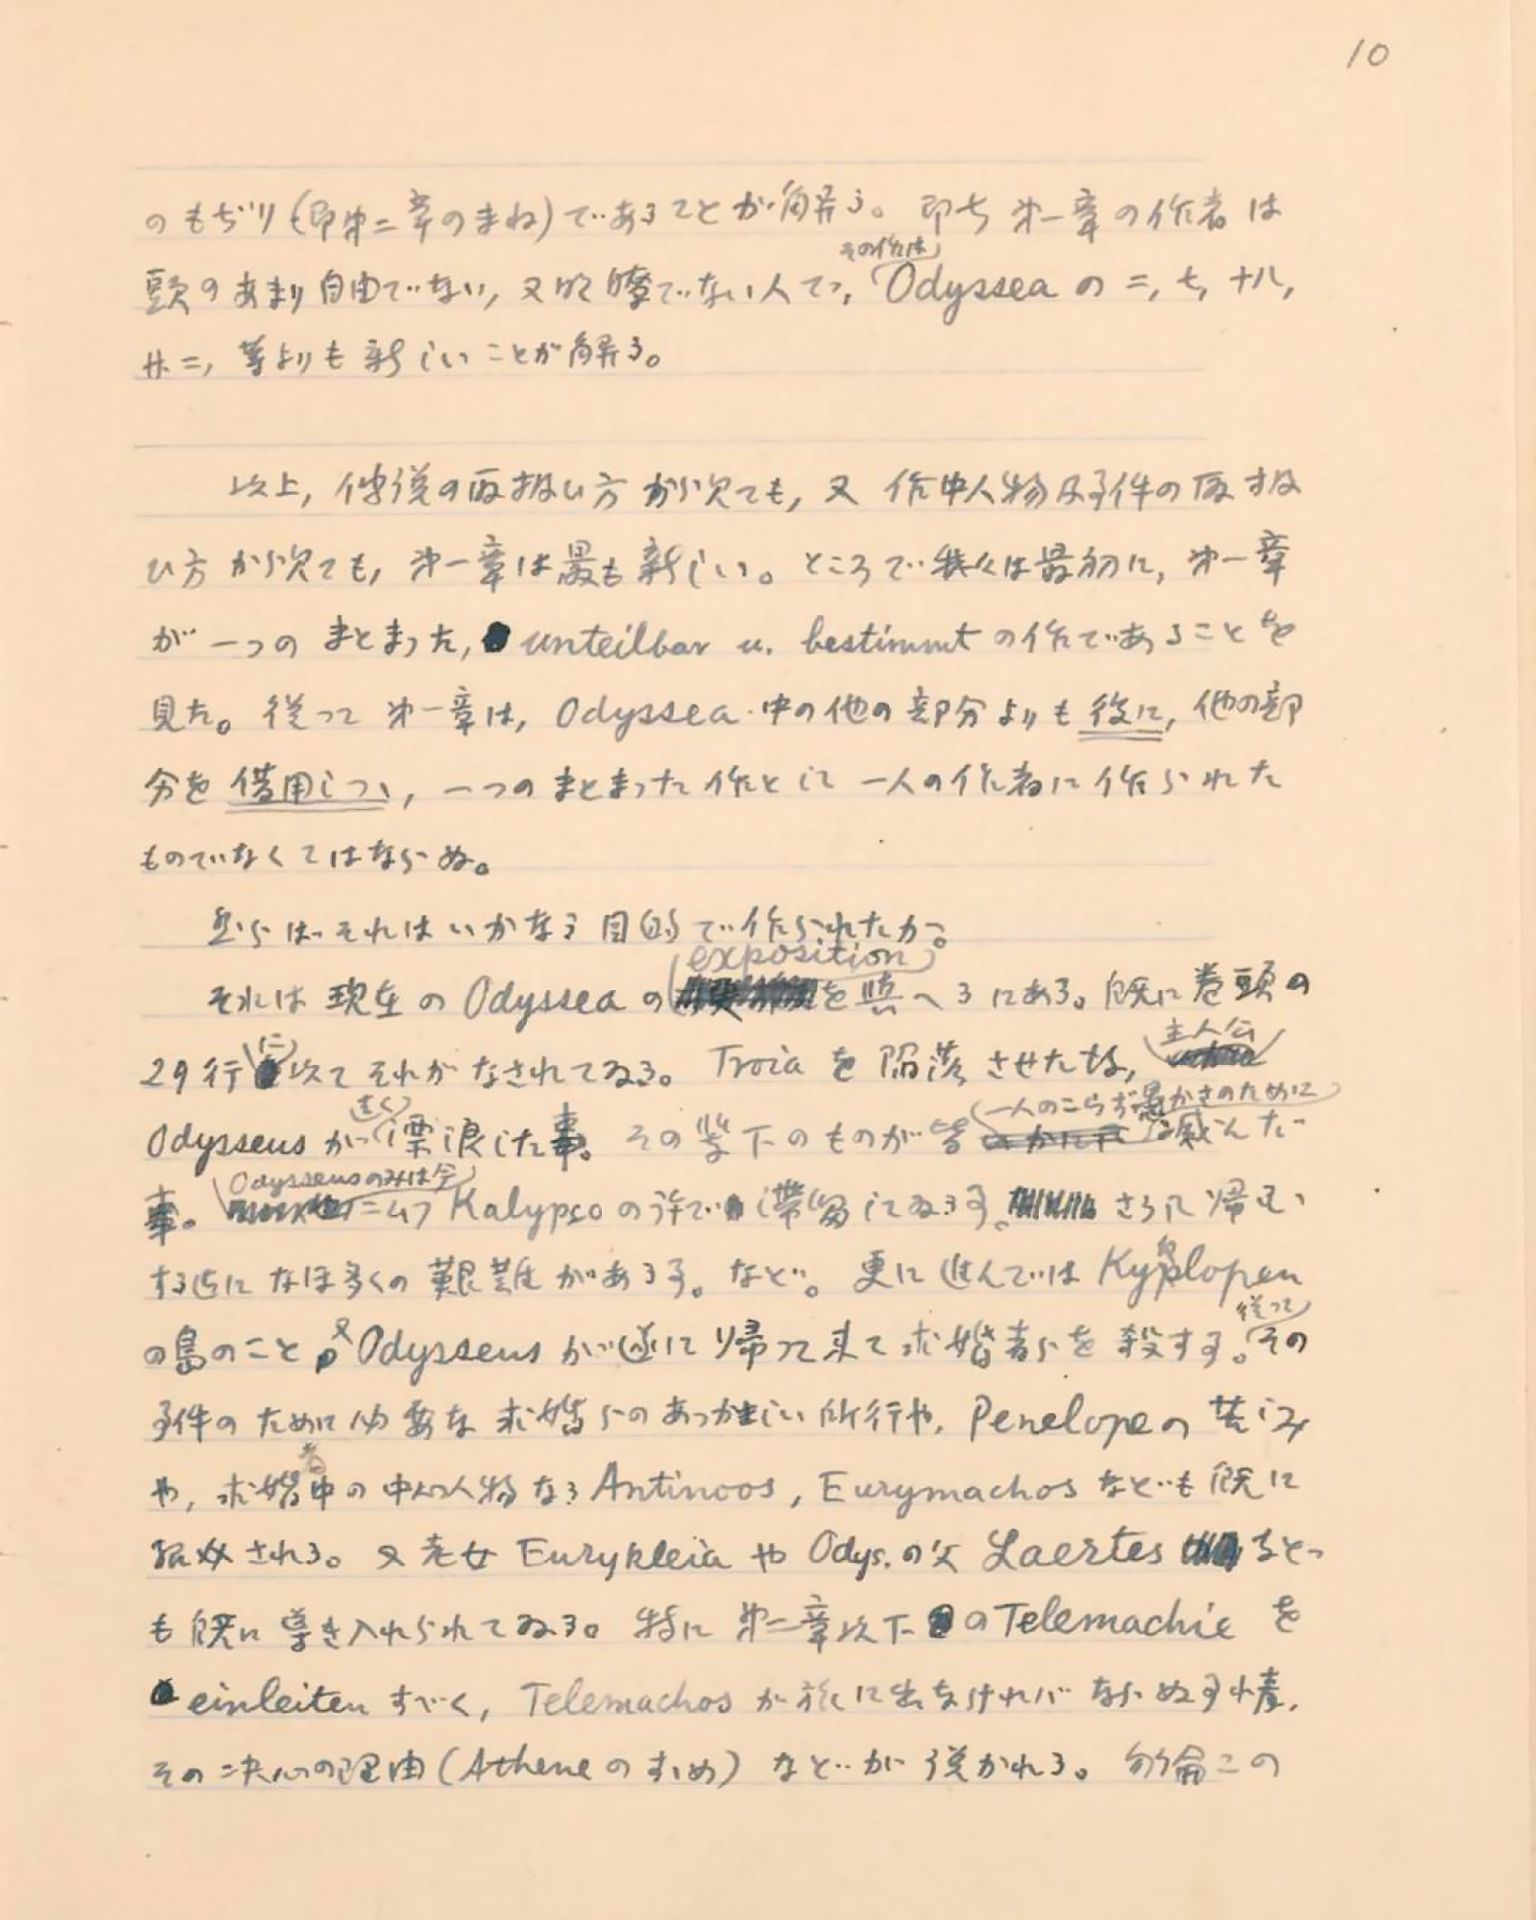 10
のもぢり(即第二章のまね)であることが解る。即ち第一章の作者は
頭のあまり自由でない,又明瞭でない人で,その作は Odyssea の二,七,十八,
廿二,等よりも新しいことが解る。
以上,伝説の取扱ひ方から次ても,又作中人物及事件の取す扱
ひ方から次ても,第一章は最も新しい。ところで我々は最初に,第一章
が一つのまとまった, unteilbar u. bestimmt の作であることを
見た。従って第一章は,Odyssea 中の他の部分よりも後に,他の部
分を借用しつゝ,一つのまとまった作として一人の作者に作られた
ものでなくてはならぬ。
然らばそれはいかなる目的で作られたか。
それは現在の Odyssea の exposition を与へるにある。既に巻頭の
29行に次てそれがなされてゐる。Troia を陥落させた後,主人公
Odysseus が遠く漂浪した事。その部下のものが皆一人のこらず愚かさのために滅んだ
事。Odysseusのみは今 Kalypso の許で滞留してゐる事。さらに帰宅
する迄になほ多くの艱難がある事。など。更に進んでは Kyklopen
の島のこと又 Odysseus が遂に帰って来て求婚者らを殺す事。従ってその
事件のために必要な求婚者らのあつかましい所行や,Penelope の苦しみ
や,求婚者中の中心人物なる Antinoos, Eurymachos なども既に
描写される。又老女 Eurykleia や Odys. の父 Laertes など
も既に導き入れられてゐる。特に第二章以下の Telemachie を
einleiten すべく,Telemachos が旅に出なければならぬ事情,
その決心の理由(Athene のすゝめ)などが説かれる。勿論この